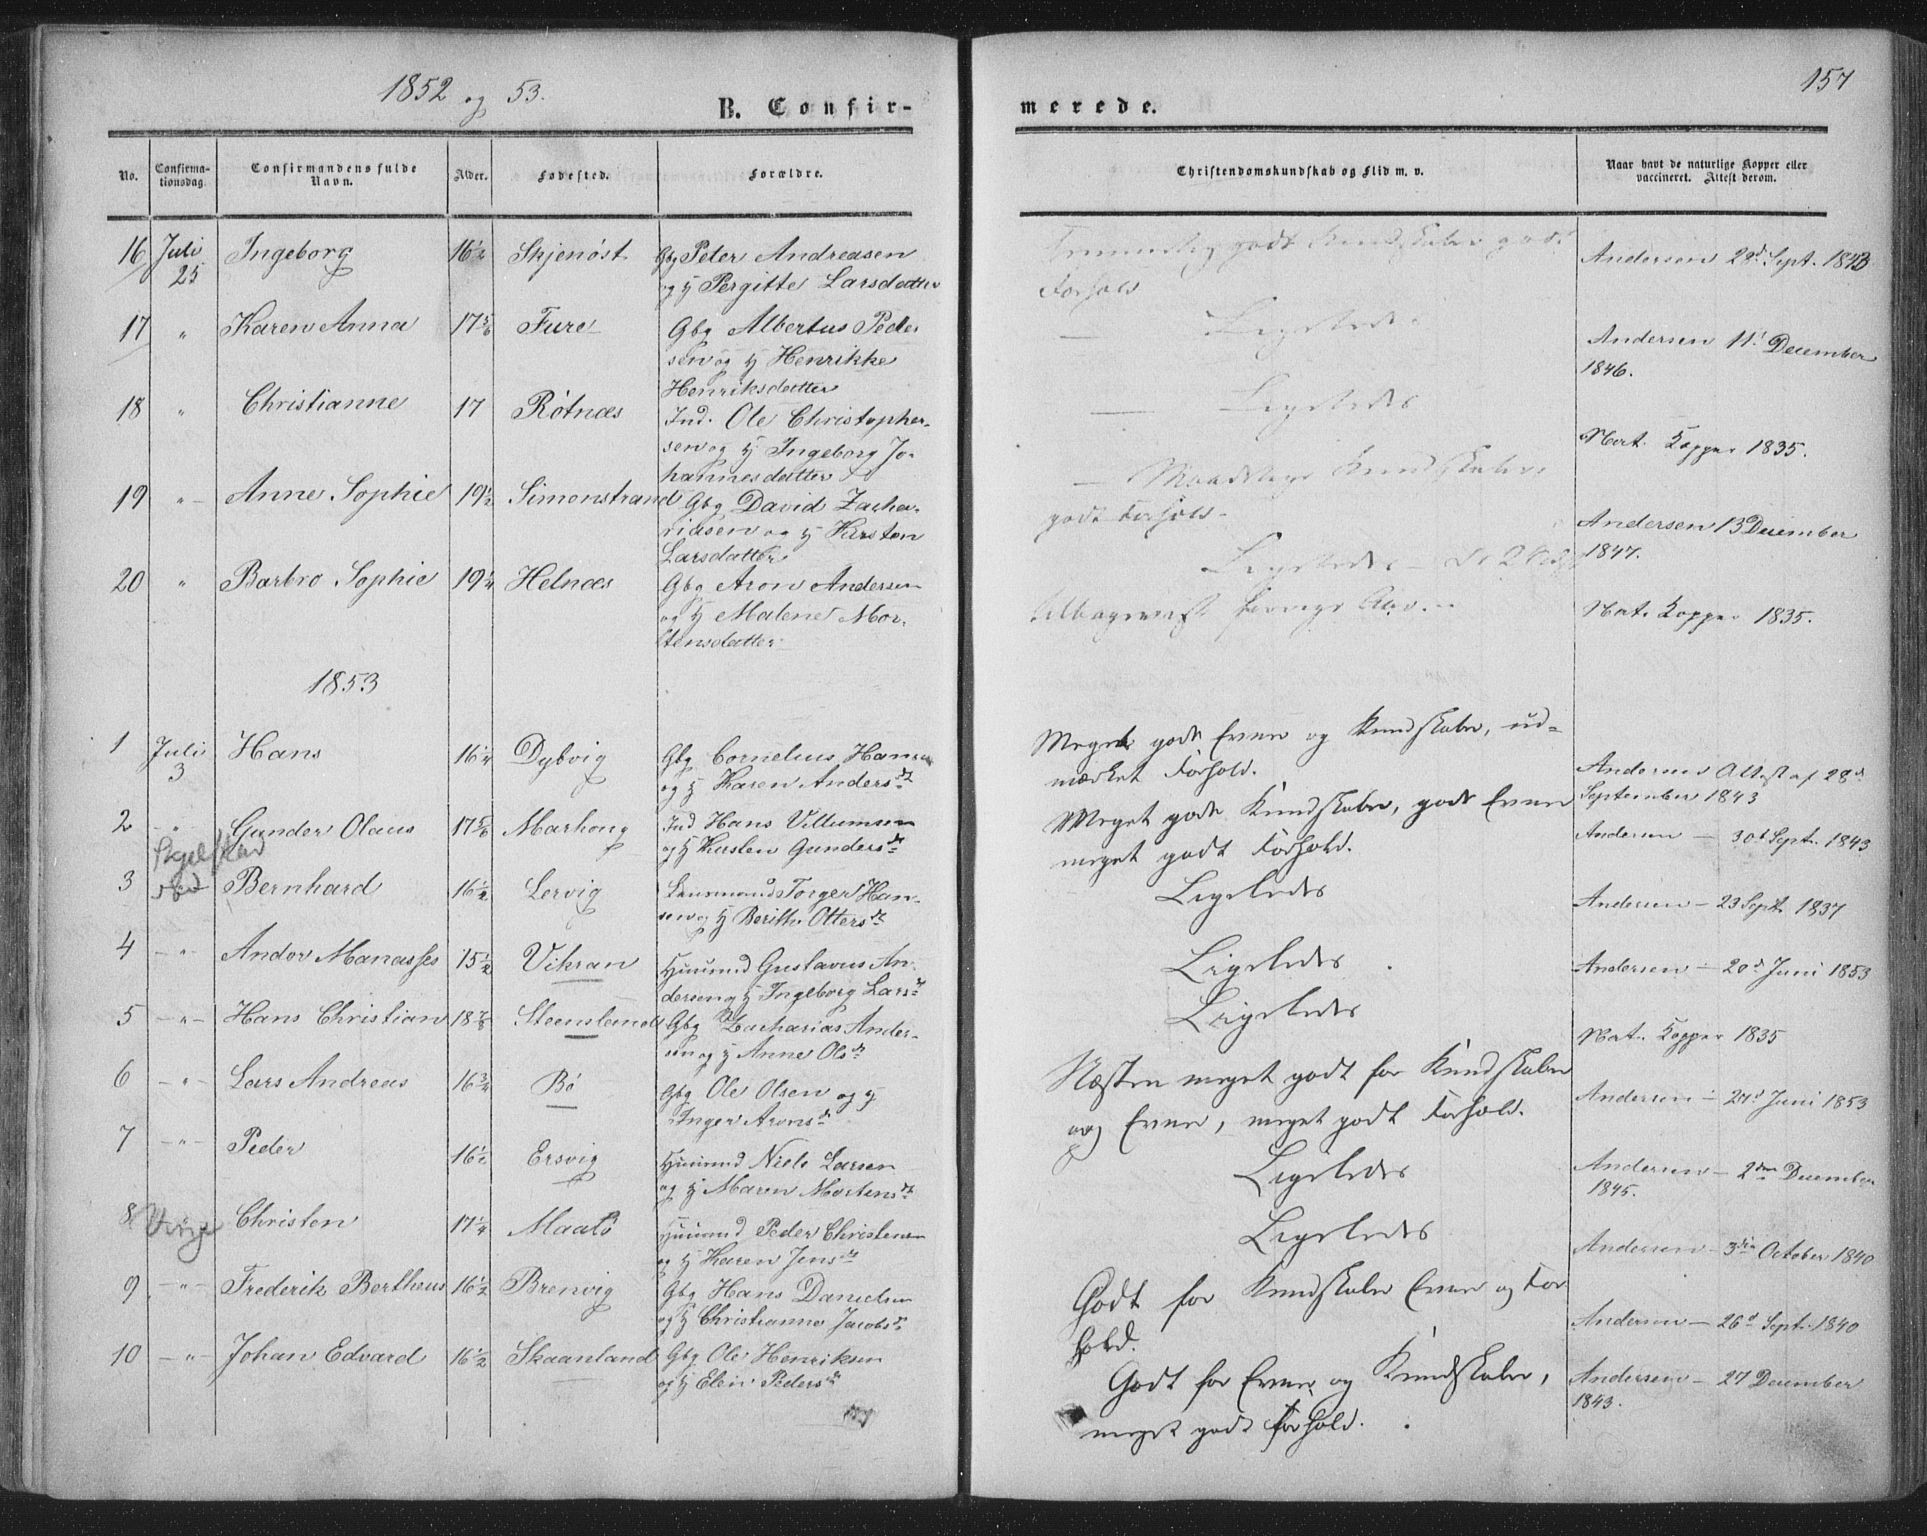 1852 og 53.
B. Confir-
merede.
157
No.
Confirma-
tionsdag
Confirmandens fulde
Navn.
Alder.
Fødested.
Forældre.
Christendomskundskab og Flid m. v.
Naar havt de naturlige Kopper eller
vaccineret. Attest derom.
16 Juli 25 Ingeborg 16½ Skjenöst Gbg Peter Andreasen
og H Pergitte Larsdatter
godt Kundskaber godt
Forhold
Andersen 28d Sept. 1843
17 " Karen Anna 17 5/6 Fure Gbg Albertus Peder
sen og H Henrikke
Henriksdatter
Ligeledes
Andersen 11' December
1846.
18 " Christianne 17 Rötnæs Ind. Ole Christopher-
sen og H Ingeborg Jo-
hannesdatter
Ligeledes
Nat. Kopper 1835.
19 " Anne Sophie 19½ Simonstrand Gbg David Zacha-
riasen og H Kirsten
Larsdatter
Maadelige Kundskaber
godt Forhold
Andersen 13 December
1847.
20 " Barbro Sophie 19¼ Helnæs Gbg Aron Andersen
og H Malene Mor-
tensdatter
Ligeledes
tilbageviist forrige Aar.
Nat. Kopper 1835.
1853
1 Juli 3 Hans 16¼ Dybvig Gbg Cornelius Hansen
og H Karen Andersdt
Meget godt Evner og Kundskaber, ud-
mærket Forhold.
Andersens Attest af 28d
September 1843
2 " Gunder Olaus 17 5/6 Marhoug Ind Hans Villumsen
og H Kirsten Gundersdt
Meget godt Kundskaber, godt Evner
meget godt Forhold.
Andersen — 30t Sept. 1843
3 Bernhard 16½ Lervig Torger Han-
sen og H Berith Ottersdt
Ligeledes
Andersen — 23 Sept. 1837
4 - " - Andor Manasses 15½ Vikran Huusmd Gustavus An-
dersen og H Ingeborg Larsdt
Ligeledes
Andersen — 20d Juni 1853
5 - " - Hans Christian 18 7/8 Steensland Gbg Zacharias Ander-
sen og H Anne Olsdt
Ligeledes
Nat. Kopper 1835
6 - " - Lars Andreas 16¾ Bö Gbg Ole Olsen og H
Inger Aronsdt
Næsten meget godt for Kundskaber
og Evner, meget godt Forhold.
Andersen — Juni 1853
7 - " - Peder 16½ Ersvig Huusmd Niels Larsen
og H Maren Mortensdt
Ligeledes
Andersen — 2den December
1845.
8 Christen 17¼ Maalö Huusmd Peder Christensen
og H Karen Jensdt
Ligeledes
Andersen — 3die October 1840
9 - " - Frederik Bertheus 16½ Brenvig Gbg Hans Danielsen
og H Christianna Jacobsdt
Godt for Kundskaber Evner og For
hold.
Andersen — 26d Sept. 1840
10 - " - Johan Edvard 16½ Skaanland Gbg Ole Henriksen
og H Elen Pedersdt
Godt for Evner og Kundskaber,
meget godt Forhold.
Andersen — 27 December
1843.